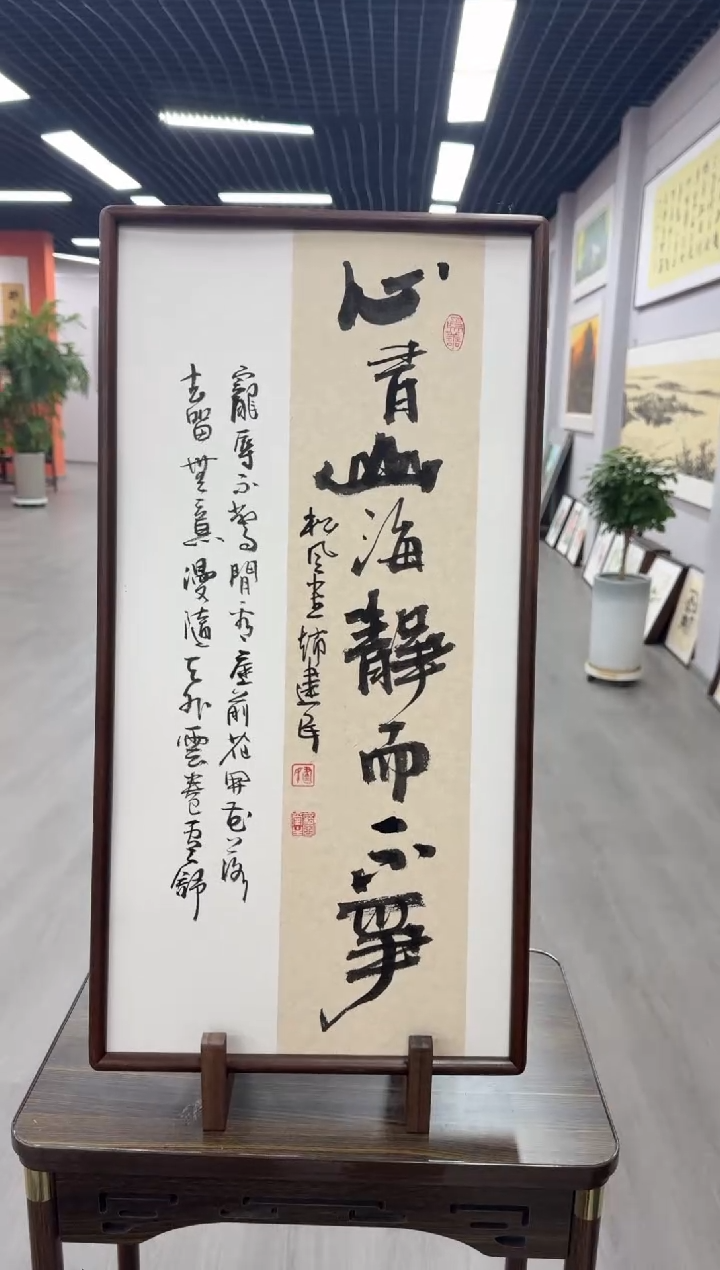 心有山海靜而不爭
松风 建民
寵辱不驚閒看庭前花開花落
去留無意漫隨天外雲卷雲舒